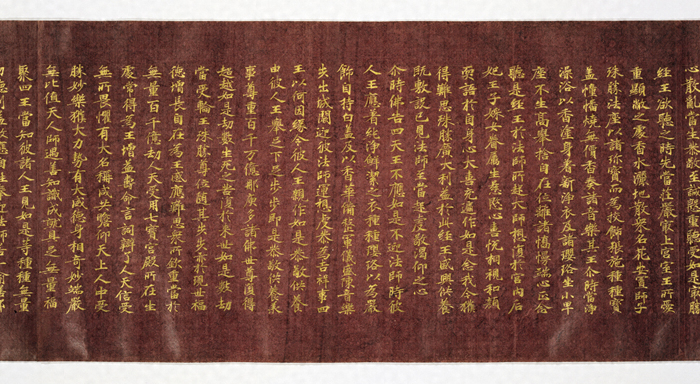 經王欲聽之時先當莊嚴最上宮室王所愛
重顯敞之處香水灑地散衆名花安置師子
殊勝法座以諸珎寶而為校飾張施種種寶
蓋幢幡燒無價香奏諸音樂其王尒時當淨
澡浴以香塗身著新淨衣及諸瓔珞坐小卑
座不生高舉捨自在位離諸憍慢端心正念
聽是經王於法師所起大師想復於宮內后
妃王子婇女眷屬生慈愍心喜悅相視和顏
耎語於自身心大喜充遍作如是念我今獲
得難思殊勝廣大利益於此經王盛興供養
既敷設已見法師至當起虔敬渴仰之心
尒時佛告四天王不應如是不迎法師時彼
人王應著純淨鮮潔之衣種種瓔珞以為嚴
飾自持白蓋及以香華備整軍儀盛陳音樂
步出城闕迎彼法師運想虔恭為吉祥事四
王以何因緣令彼人王親作如是恭敬供養
由彼人王舉足下足步步即是恭敬供養承
事尊重百千万億那庾多諸佛世尊復得
超越如是劫數生死之苦復於來世如是數劫
當受輪王殊勝尊位隨其步步亦於現世福
德增長自在為王感應難思衆所欽重當於
無量百千億劫人天受用七寶宮殿所在生
處常得為王增益壽命言詞辯了人天信受
無所畏懼有大名稱咸共瞻仰天上人中受
勝妙樂獲大力勢有大威德身相奇妙端嚴
無比值天人師遇善知識成就具足無量福
聚四王當知彼諸人王見如是等種種無量